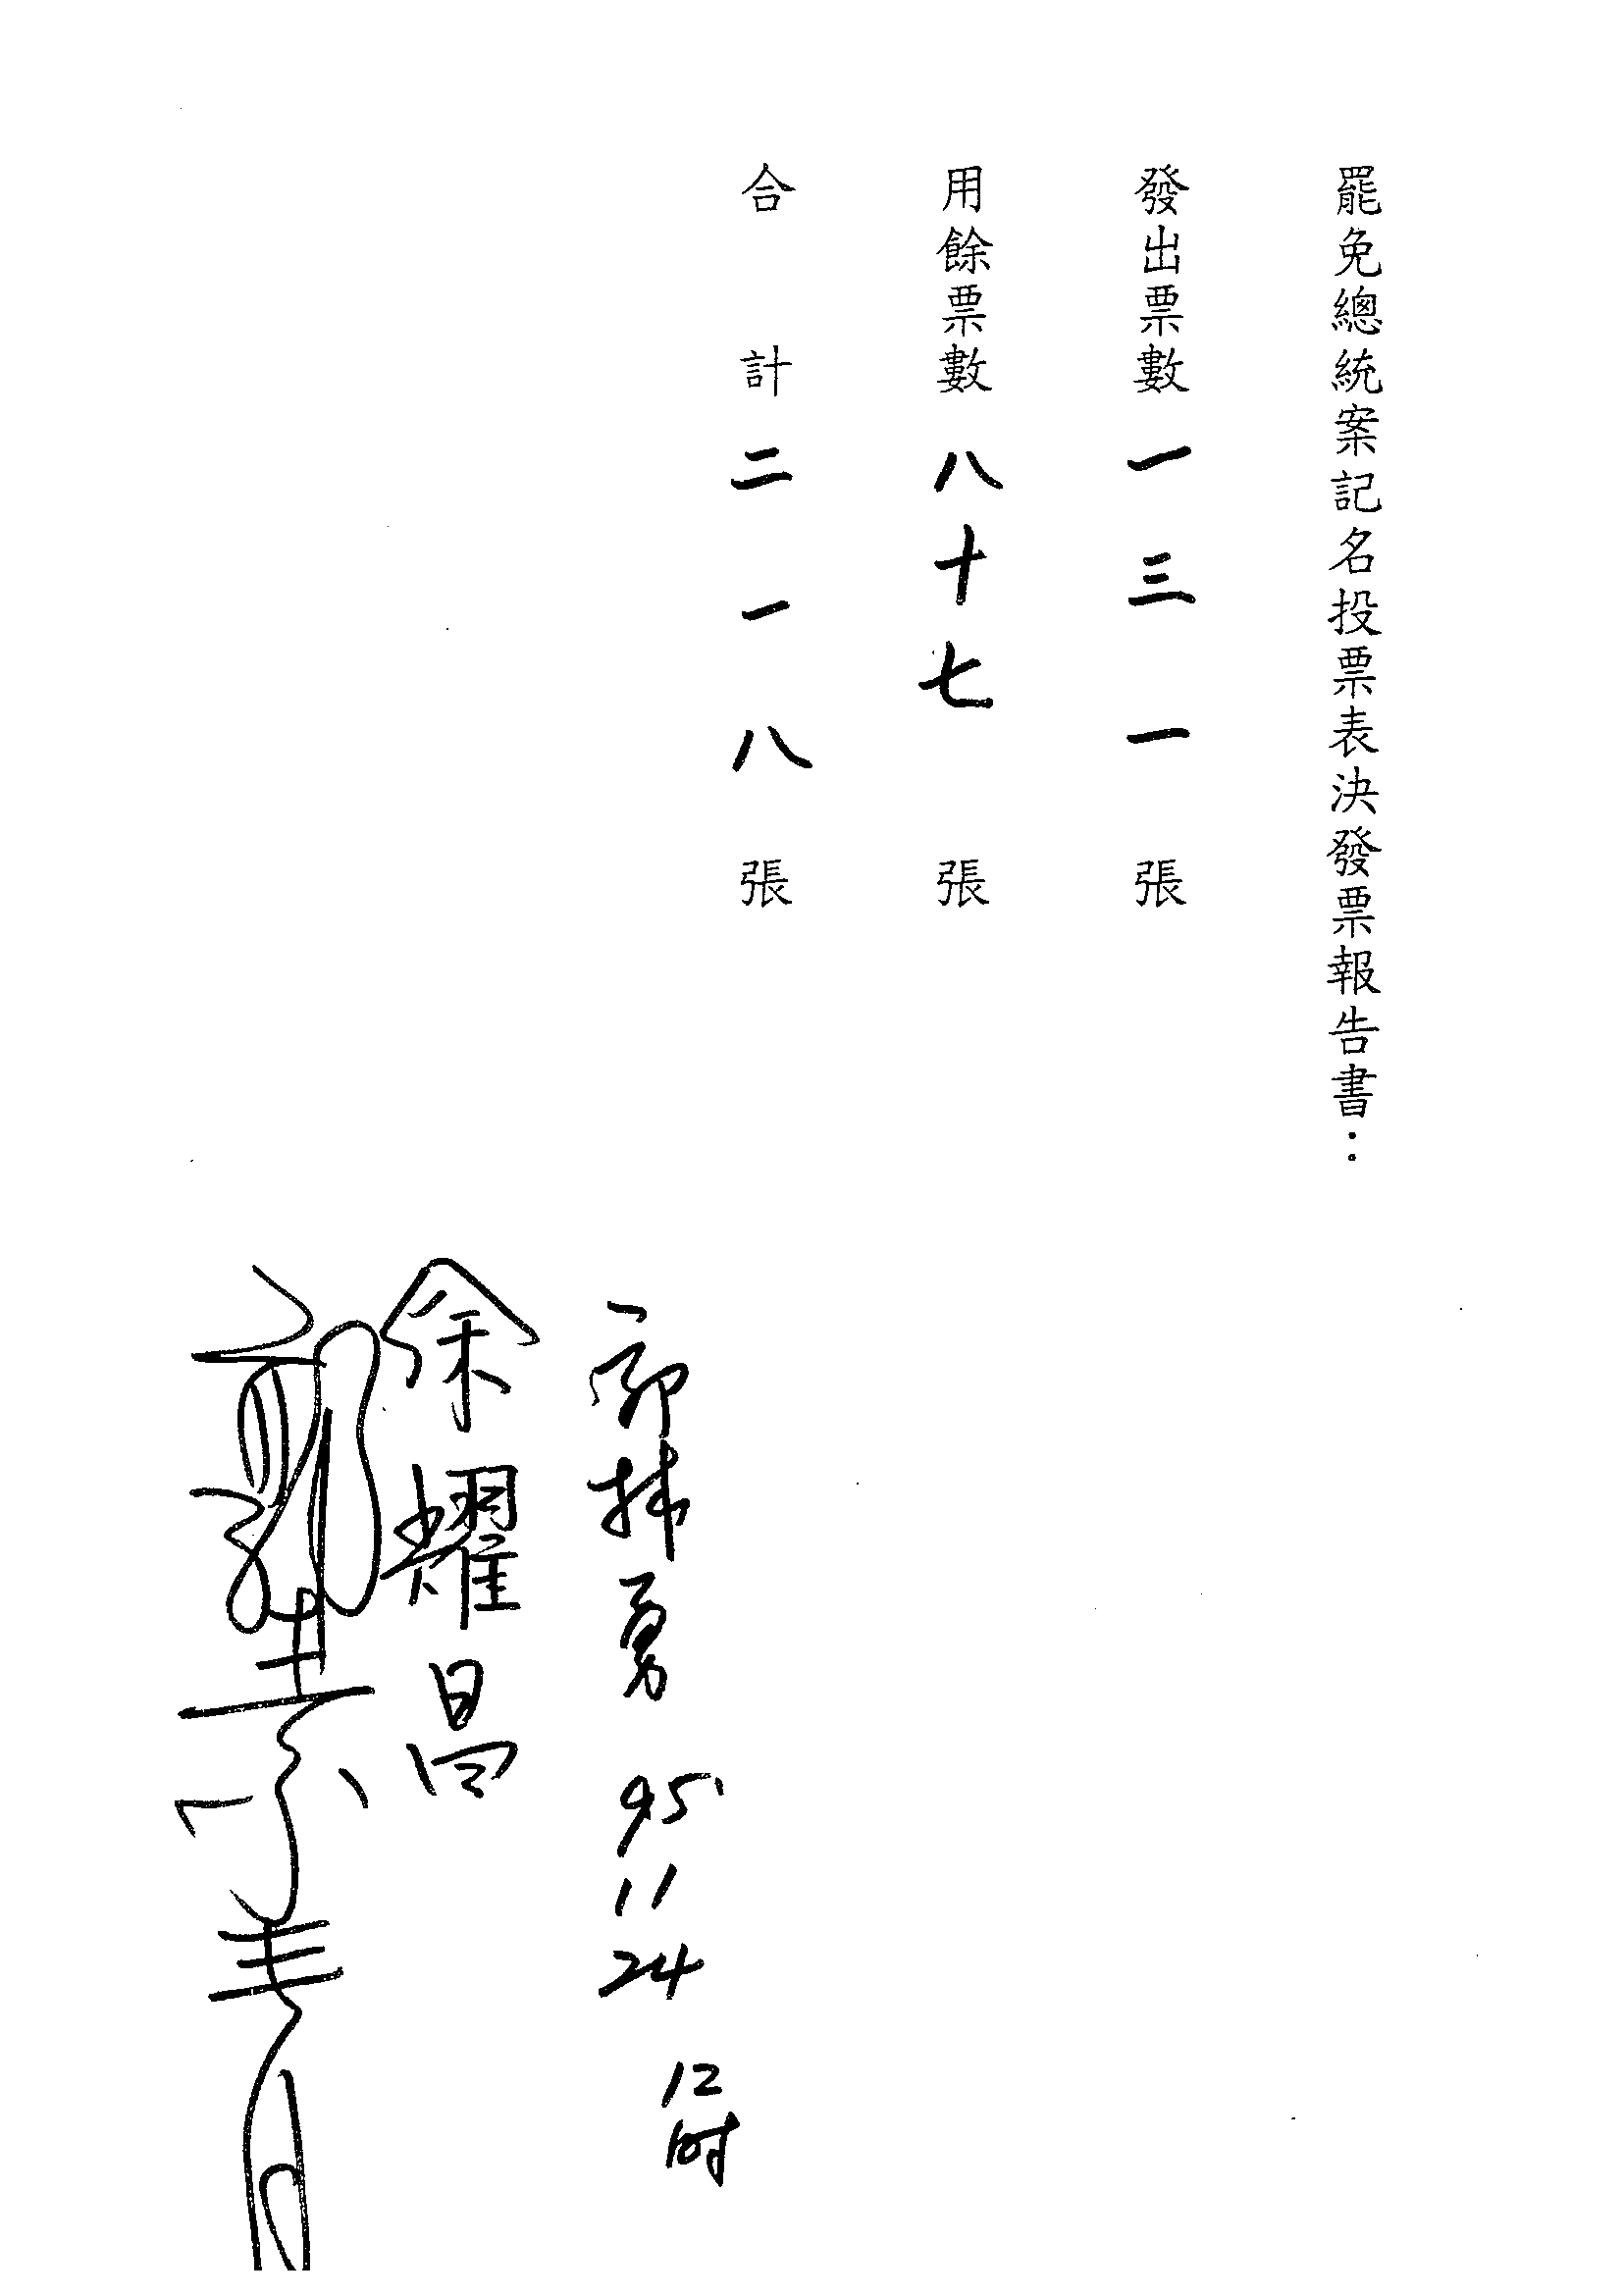 罷免總統案記名投票表決發票報告書：
發出票數一三一張
用餘票數八十七張
合計二一八張
郭林勇 95 11 24 12时
余耀昌
郭素春